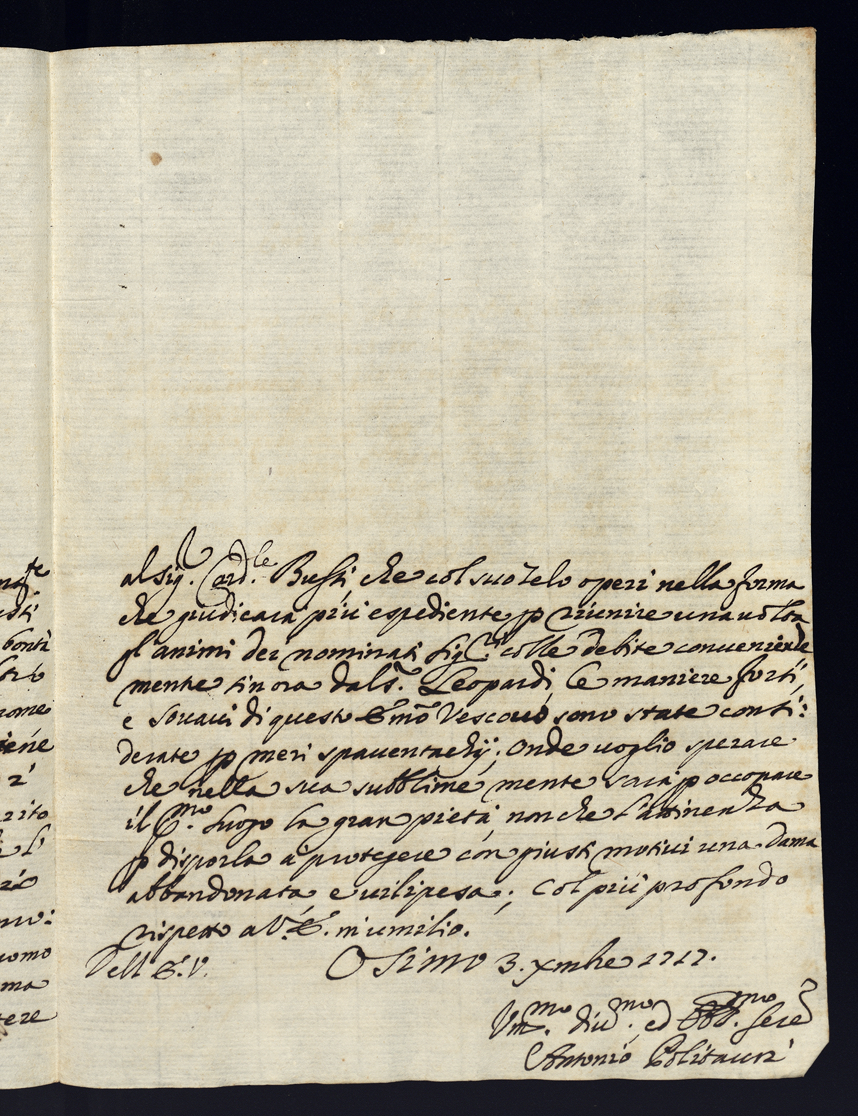 al Sig.r Card.le Bussi, che col suo zelo operi nella forma
che giudicarà più espediente p riunire una volta
gl'animi dei nominati Sig.ri colle debite convenienze
mente sin ora dal S. Leopardi le maniere forti,
e soavi di questo Emo Vescovo sono state consi:
derate p meri spauentachij; onde voglio sperare
che nella sua subblime mente sarà p occupare
il P.mo luogo la gran pietà non che l'attinenza
p disporla à protegere con giusti motivi una dama
abbandonata e vilipesa; Col più profondo
rispetto a V. E. m'umilio.
Dell E. V. Osimo 3. Xmbre 1717.
Um.mo Div.mo ed Obb.mo Sere
Antonio